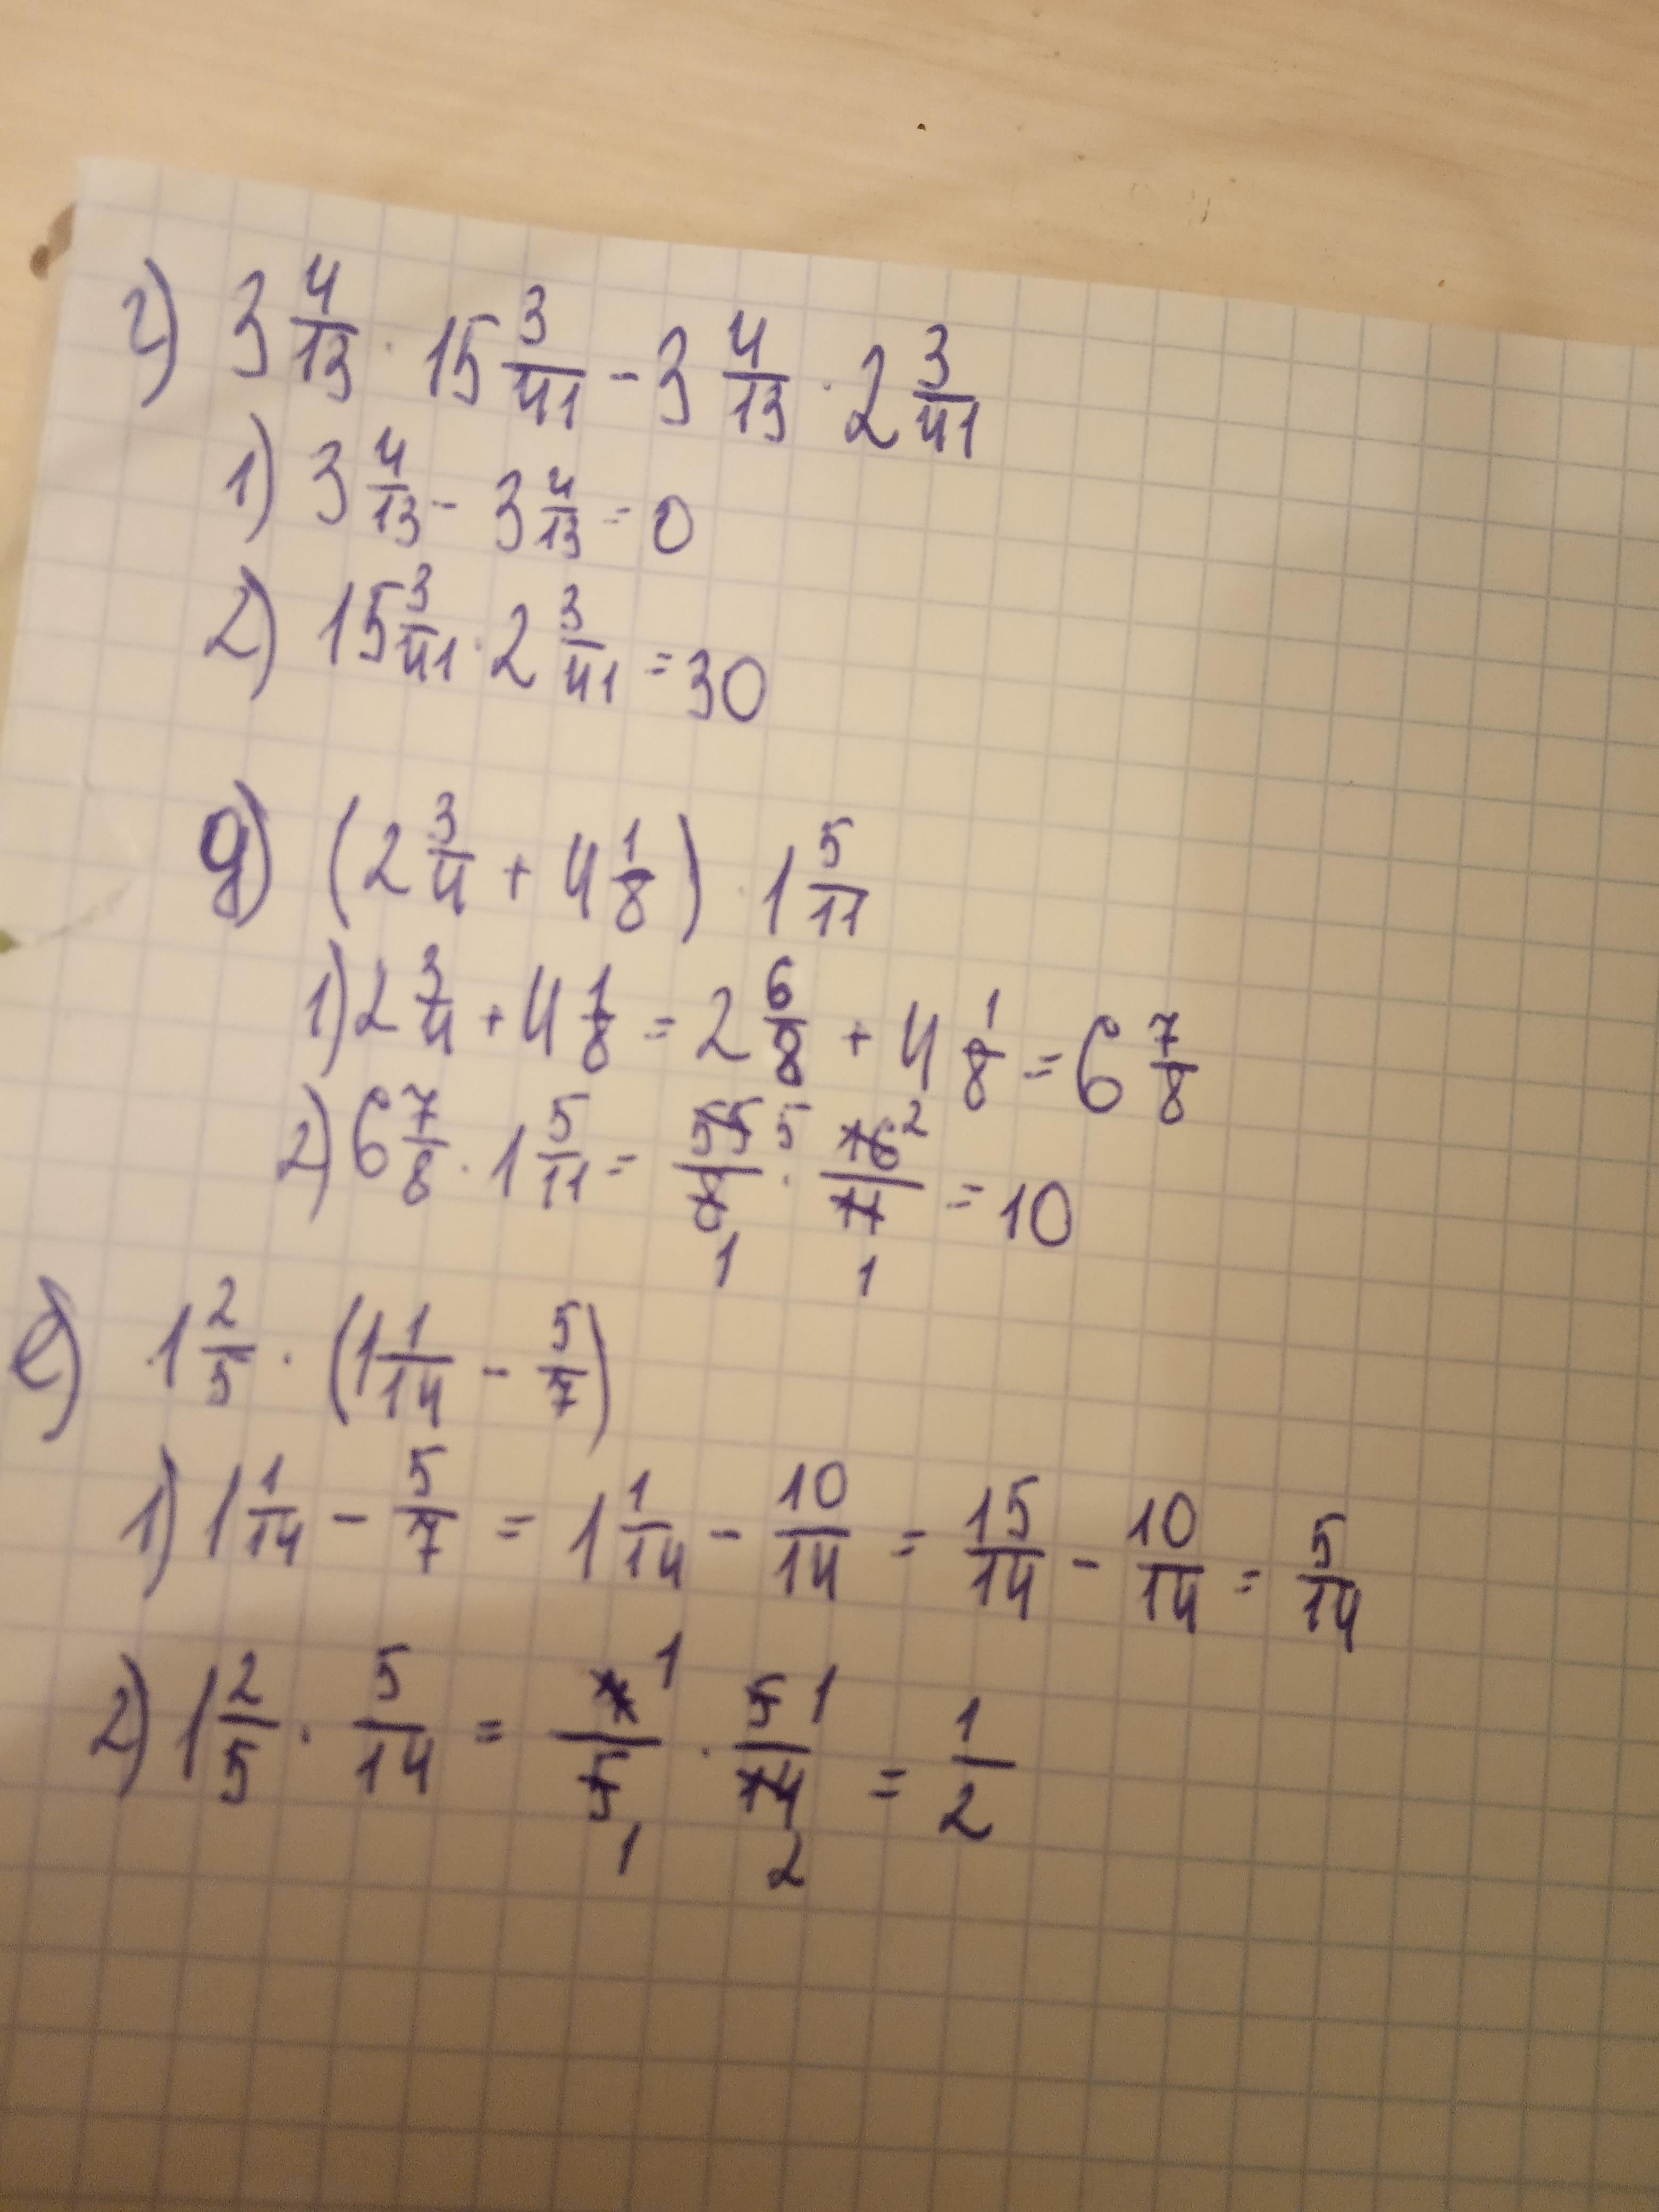 г) 3 4/13 · 15 3/41 - 3 4/13 · 2 3/41
1) 3 4/13 - 3 4/13 = 0
2) 15 3/41 · 2 3/41 = 30
д) (2 3/4 + 4 1/8) · 1 5/11
1) 2 3/4 + 4 1/8 = 2 6/8 + 4 1/8 = 6 7/8
2) 6 7/8 · 1 5/11 = 55 5/8 1 · 16 2/11 1 = 10
е) 1 2/5 · (1 1/14 - 5/7)
1) 1 1/14 - 5/7 = 1 1/14 - 10/14 = 15/14 - 10/14 = 5/14
2) 1 2/5 · 5/14 = 7 1/5 1 · 5 1/14 2 = 1/2